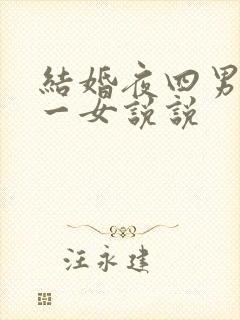 結婚夜四男
一女說說
汪永建